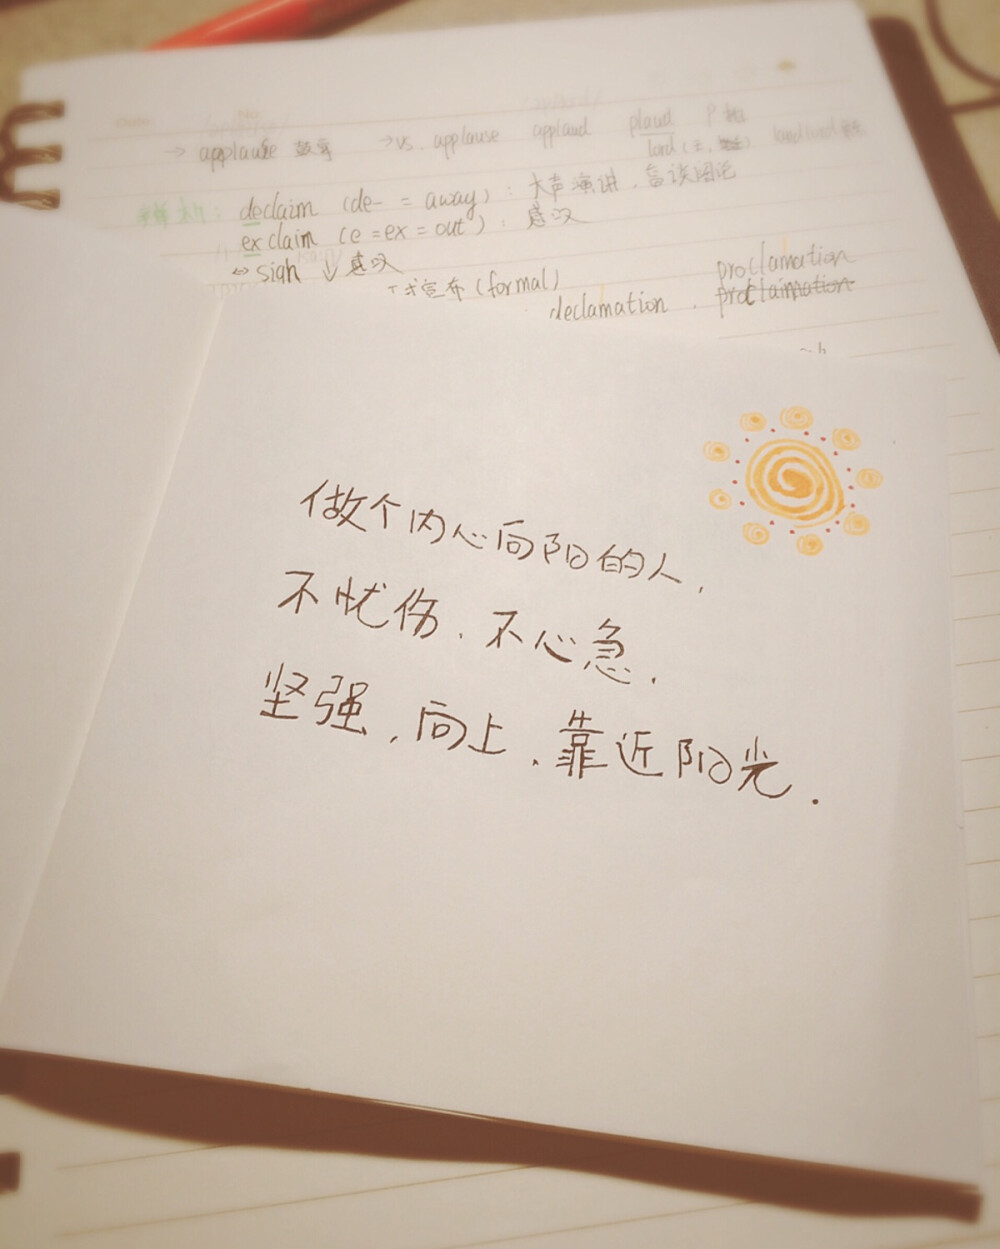 → applause 鼓掌 → vs. applause applaud plaud P
lord (主,
declaim (de- = away) : 大声演讲,
exclaim (e = ex = out) : 感叹
↔ sigh ↓ 感叹
宣布 (formal)
proclamation
declamation . proclaimation
做个内心向阳的人,
不忧伤,不心急,
坚强,向上,靠近阳光.